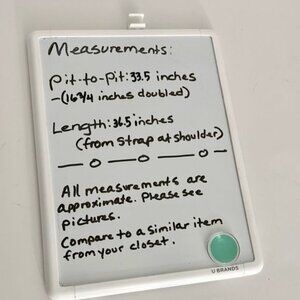 Measurements:
pit-to-pit: 33.5 inches
-(16 3/4 inches doubled)
Length: 36.5 inches
(from strap at shoulder)
All measurements are
approximate. Please see
pictures.
Compare to a similar item
from your closet.
U BRANDS